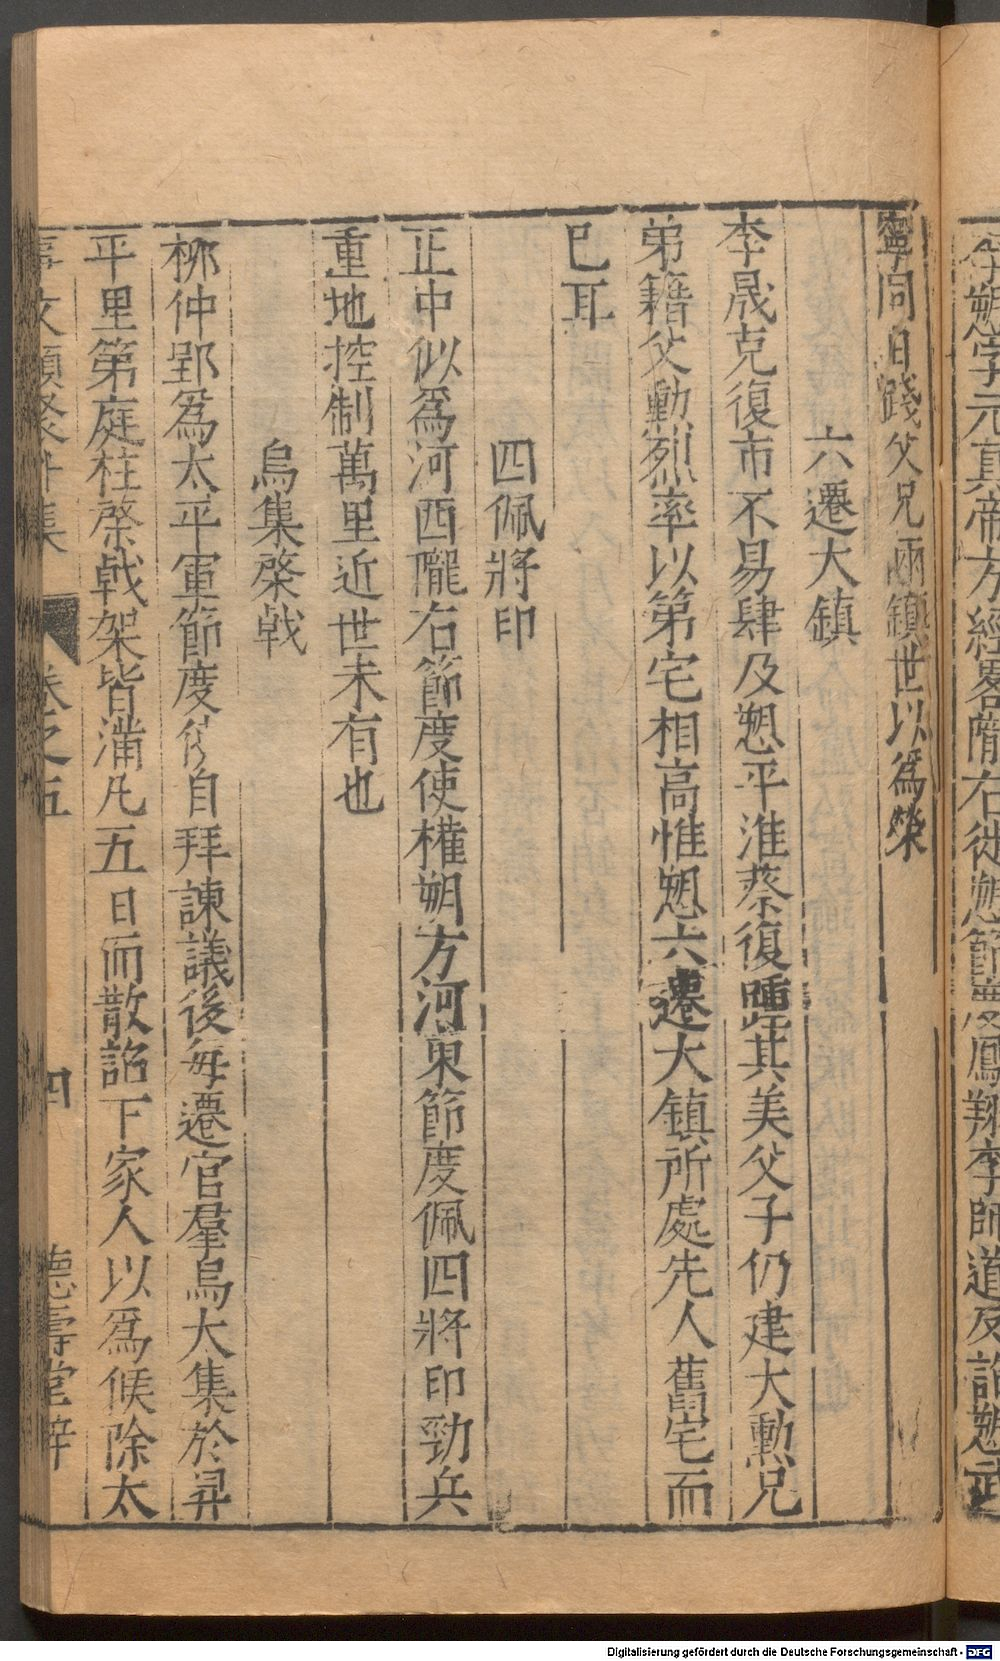 李愬字元真帝方經畧隴右徙愬節度鳳翔李師道反詔愬武
寧同日踐父兄兩鎮世以爲榮
六遷大鎮
李晟克復市不易肆及愬平淮蔡復踵其美父子仍建大勲兄
弟籍父勳烈率以第宅相高惟愬六遷大鎮所處先人舊宅而
巳耳
四佩將印
正中似爲河西隴右節度使權朔方河東節度佩四將印勁兵
重地控制萬里近世未有也
烏集棨戟
柳仲郢爲太平軍節度使自拜諫議後每遷官羣烏大集於昇
平里第庭柱棨戟架皆滿凡五日而散詔下家人以爲候除太
事文類聚外集 卷之五 四 德壽堂梓
Digitalisierung gefördert durch die Deutsche Forschungsgemeinschaft - DFG